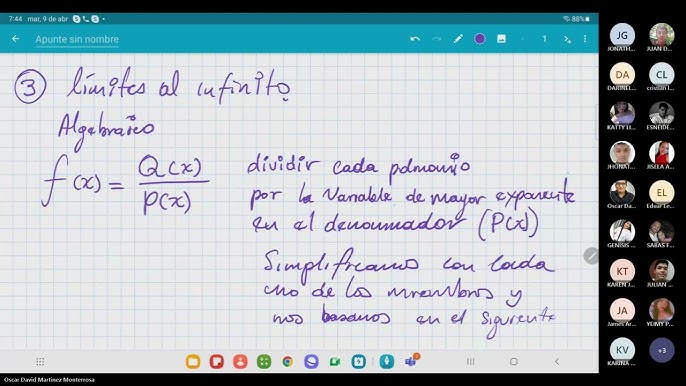 7:44 mar, 9 de abr
88%
Apunte sin nombre
1
3 límites al infinito
Algebraico
f(x) = Q(x)
P(x)
dividir cada polinomio
por la variable de mayor exponente
en el denominador (P(x))
Simplificamos con cada
uno de los miembros y
nos basamos en el siguiente
JG
JONATH...
JUAN D...
DA
DARINEL...
CL
cristian l...
KATTY LI...
ESNEIDE...
JHONAT...
JISELA A...
Oscar Da...
EL
Eduar Le...
GENESIS ...
SABAS F...
KT
KAREN J...
JULIAN ...
JA
James Ar...
YEIMY P...
KV
KARINA ...
+3
Oscar David Martinez Monterrosa